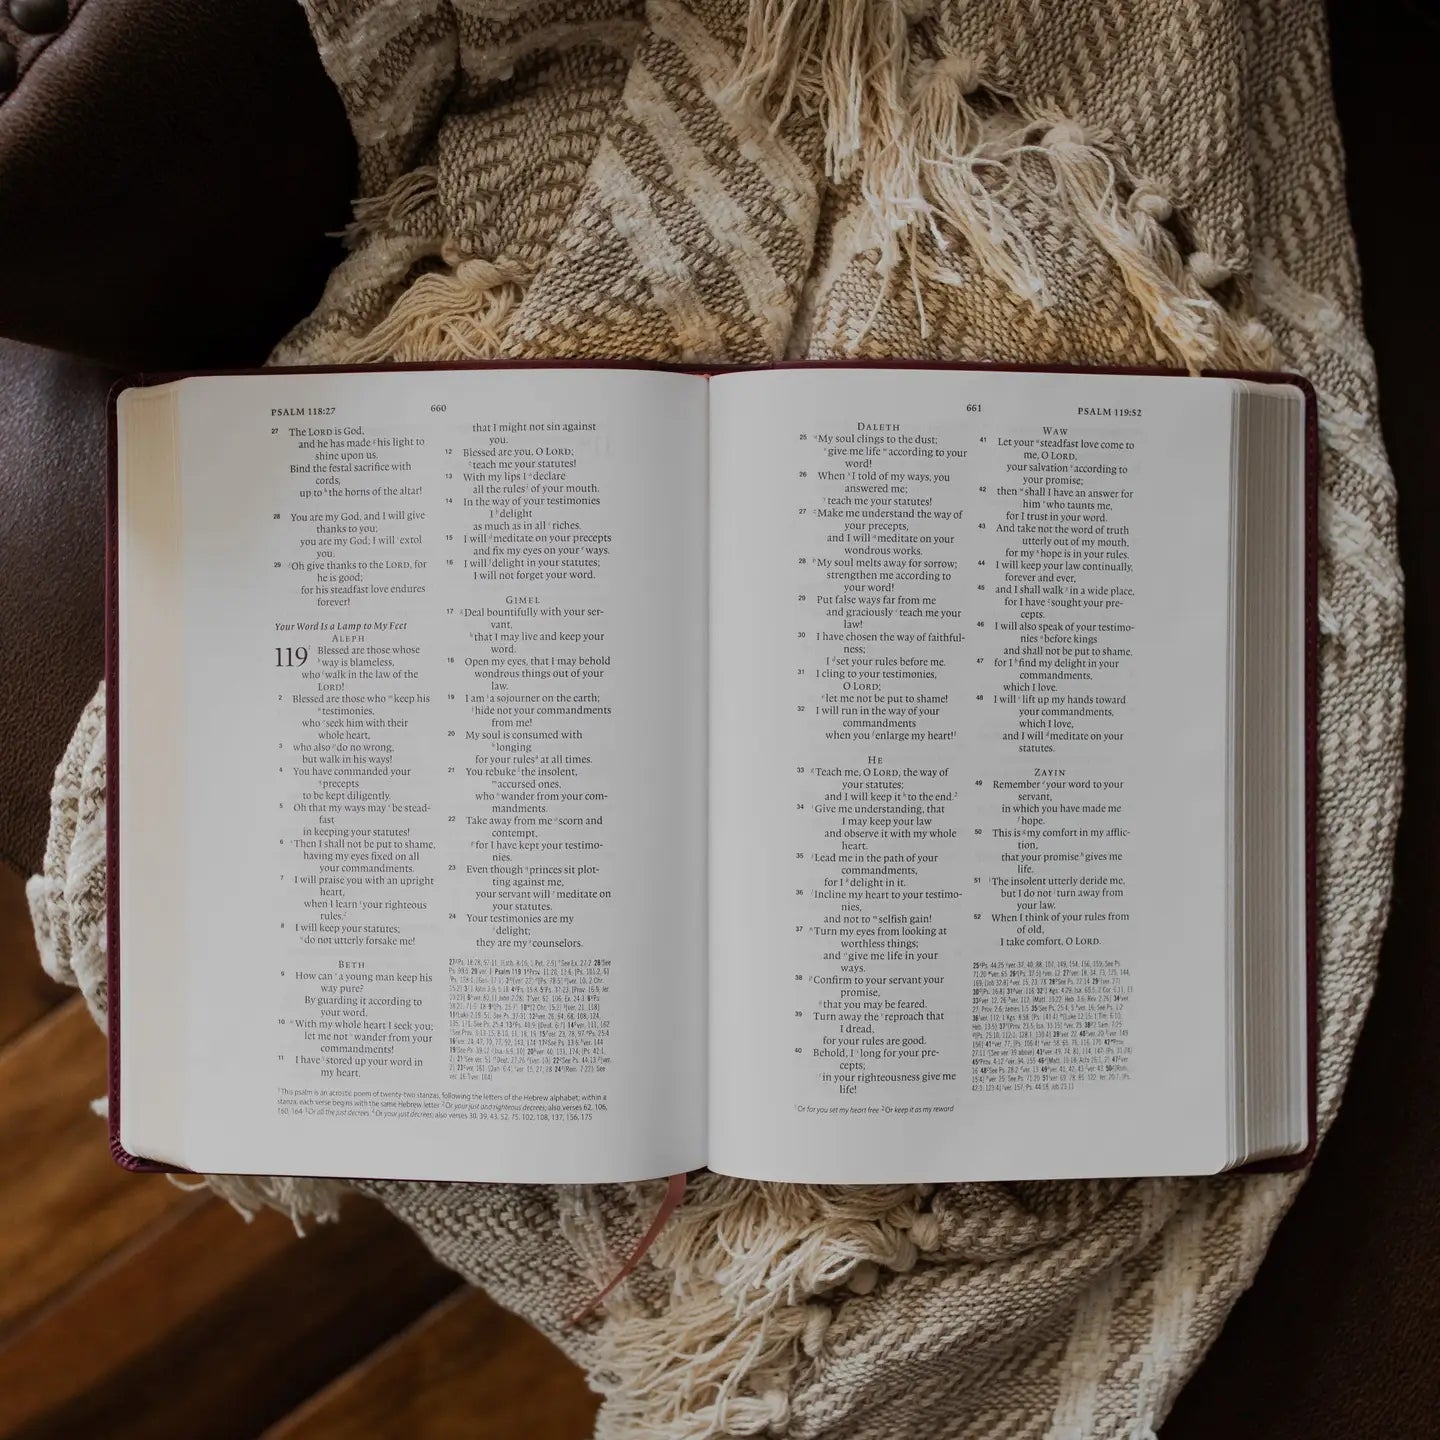 PSALM 118:27
660
27 The LORD is God,
and he has made g his light to
shine upon us.
Bind the festal sacrifice with
cords,
up to h the horns of the altar!
28 You are my God, and I will give
thanks to you;
you are my God; I will i extol
you.
29 Oh give thanks to the LORD, for
he is good;
for his steadfast love endures
forever!
Your Word Is a Lamp to My Feet
ALEPH
119 1 Blessed are those whose
way is blameless,
who walk in the law of the
LORD!
2 Blessed are those who keep his
testimonies,
who seek him with their
whole heart,
3 who also do no wrong,
but walk in his ways!
4 You have commanded your
precepts
to be kept diligently.
5 Oh that my ways may be stead-
fast
in keeping your statutes!
6 Then I shall not be put to shame,
having my eyes fixed on all
your commandments.
7 I will praise you with an upright
heart,
when I learn your righteous
rules.2
8 I will keep your statutes;
do not utterly forsake me!
BETH
9 How can a young man keep his
way pure?
By guarding it according to
your word.
10 With my whole heart I seek you;
let me not wander from your
commandments!
11 I have stored up your word in
my heart,
that I might not sin against
you.
12 Blessed are you, O LORD;
teach me your statutes!
13 With my lips I declare
all the rules of your mouth.
14 In the way of your testimonies
I delight
as much as in all riches.
15 I will meditate on your precepts
and fix my eyes on your ways.
16 I will delight in your statutes;
I will not forget your word.
GIMEL
17 Deal bountifully with your ser-
vant,
that I may live and keep your
word.
18 Open my eyes, that I may behold
wondrous things out of your
law.
19 I am a sojourner on the earth;
hide not your commandments
from me!
20 My soul is consumed with
longing
for your rules at all times.
21 You rebuke the insolent,
accursed ones,
who wander from your com-
mandments.
22 Take away from me scorn and
contempt,
for I have kept your testimo-
nies.
23 Even though princes sit plot-
ting against me,
your servant will meditate on
your statutes.
24 Your testimonies are my
delight;
they are my counselors.
1 This psalm is an acrostic poem of twenty-two stanzas, following the letters of the Hebrew alphabet; within a
stanza, each verse begins with the same Hebrew letter 2 Or your just and righteous decrees; also verses 62, 106,
160, 164 3 Or all the just decrees 4 Or your just decrees; also verses 30, 39, 43, 52, 75, 102, 108, 137, 156, 175
661
PSALM 119:52
DALETH
25 My soul clings to the dust;
give me life according to your
word!
26 When I told of my ways, you
answered me;
teach me your statutes!
27 Make me understand the way of
your precepts,
and I will meditate on your
wondrous works.
28 My soul melts away for sorrow;
strengthen me according to
your word!
29 Put false ways far from me
and graciously teach me your
law!
30 I have chosen the way of faithful-
ness;
I set your rules before me.
31 I cling to your testimonies,
O LORD;
let me not be put to shame!
32 I will run in the way of your
commandments
when you enlarge my heart!1
HE
33 Teach me, O LORD, the way of
your statutes;
and I will keep it to the end.2
34 Give me understanding, that
I may keep your law
and observe it with my whole
heart.
35 Lead me in the path of your
commandments,
for I delight in it.
36 Incline my heart to your testimo-
nies,
and not to selfish gain!
37 Turn my eyes from looking at
worthless things;
and give me life in your
ways.
38 Confirm to your servant your
promise,
that you may be feared.
39 Turn away the reproach that
I dread,
for your rules are good.
40 Behold, I long for your pre-
cepts;
in your righteousness give me
life!
WAW
41 Let your steadfast love come to
me, O LORD,
your salvation according to
your promise;
42 then shall I have an answer for
him who taunts me,
for I trust in your word.
43 And take not the word of truth
utterly out of my mouth,
for my hope is in your rules.
44 I will keep your law continually,
forever and ever,
45 and I shall walk in a wide place,
for I have sought your pre-
cepts.
46 I will also speak of your testimo-
nies before kings
and shall not be put to shame,
47 for I find my delight in your
commandments,
which I love.
48 I will lift up my hands toward
your commandments,
which I love,
and I will meditate on your
statutes.
ZAYIN
49 Remember your word to your
servant,
in which you have made me
hope.
50 This is my comfort in my afflic-
tion,
that your promise gives me
life.
51 The insolent utterly deride me,
but I do not turn away from
your law.
52 When I think of your rules from
of old,
I take comfort, O LORD.
1 Or for you set my heart free 2 Or keep it as my reward